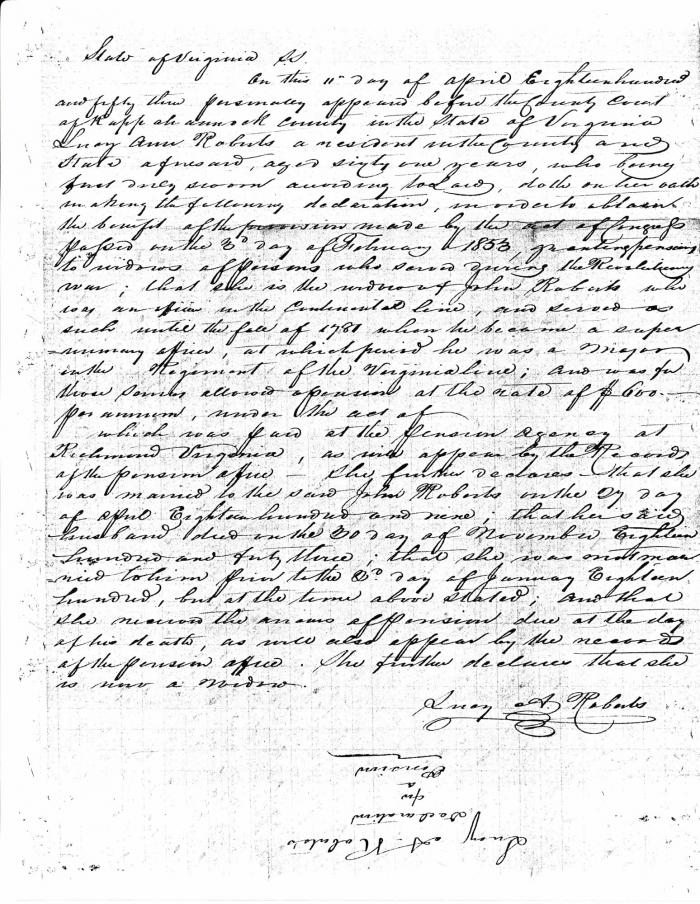 State of Virginia SS.
On this 11th day of April Eighteen hundred
and fifty three personally appeared before the County Court
of Rappahannock County in the State of Virginia
Lucy Ann Roberts a resident in the County and
State aforesaid, aged sixty one years, who being
first duly sworn according to Law, doth on her oath
making the following declaration, in order to obtain
the benefit of the provision made by the act of Congress
passed on the 3d day of February 1853, granting pensions
to widows of persons who served during the Revolutionary
war; that she is the widow of John Roberts who
was an officer in the Continental line, and served as
such until the fall of 1781 when he became a super
-numary officer, at which period he was a Major
in the Regiment of the Virginia line; and was for
those services allowed a pension at the rate of $600.—
per annum, under the act of
which was paid at the pension agency at
Richmond Virginia, as will appear by the Records
of the pension office — She further declares that she
was married to the said John Roberts on the 27 day
of April Eighteen hundred and nine; that her said
husband died on the 30 day of November Eighteen
hundred and forty three; that she was not mar
ried to him prior to the 2d day of January Eighteen
hundred, but at the time above stated; and that
she received the arrears of pension due at the day
of his death, as will also appear by the records
of the pension office. She further declares that she
is now a widow.
Lucy A. Roberts
Lucy A. Roberts
Declaration
for
a
Pension